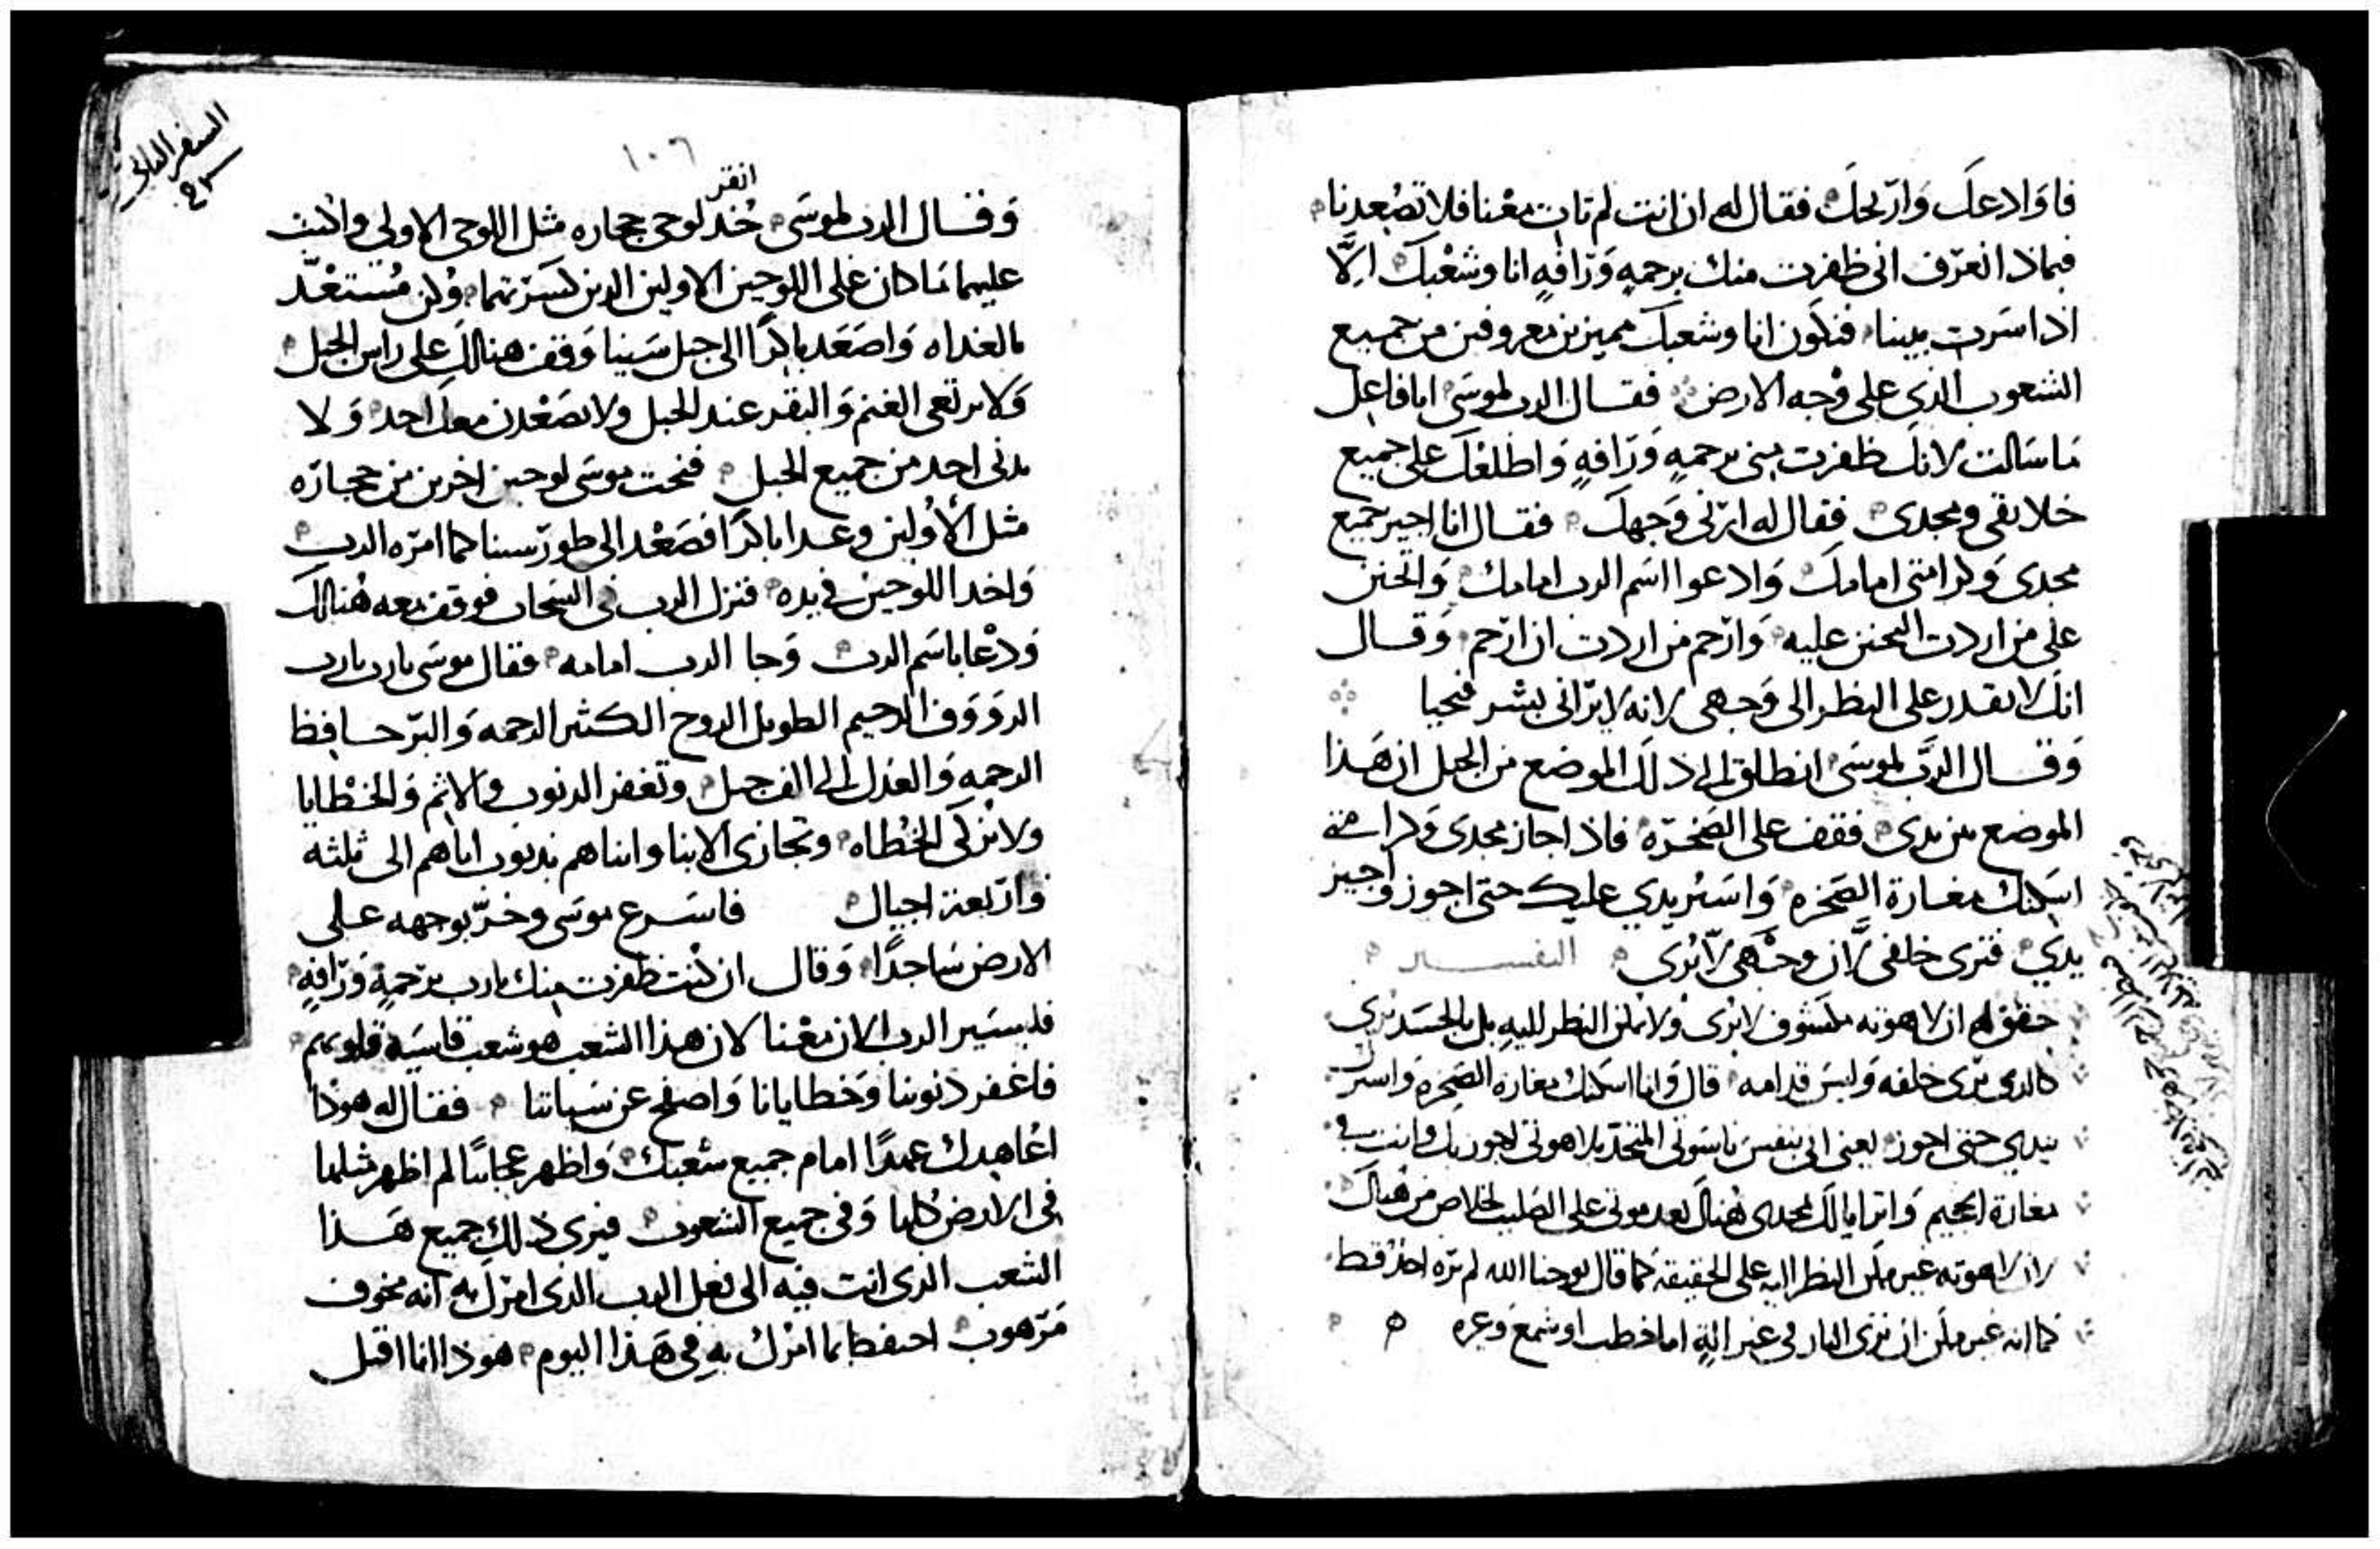 فاوادعك واريحك فقال له ان انت لم تات معنا فلا تصعدنا
فبماذا نعرف انى ظفرت منك برحمه ورافه انا وشعبك الا
اذا سرت بيننا فنكون انا وشعبك مميزين معروفين من جميع
الشعوب الذى على وجه الارض فقال الرب لموسى انا فاعل
ما سالت لانك ظفرت منى برحمه ورافه واطلعك على جميع
خلايقى ومجدى فقال له ارنى وجهك فقال انا اجيز جميع
مجدى وكرامتى امامك وادعوا اسم الرب امامك واتحنن
على من اردت التحنن عليه وارحم من اردت ان ارحم وقال
انك لا تقدر على النظر الى وجهى لانه لا يرانى بشر فيحيا
وقال الرب لموسى انطلق الى ذلك الموضع من الجبل ان هذا
الموضع بين يدى فقف على الصخره فاذا جاز مجدى وكرامتى
اسكنك مغارة الصخره واستر يدي عليك حتى اجوز واجيز
يدي فترى خلفى لان وجهى لا يرى التفسير
حقق له ان لاهوته مكشوف لا يرى ولا يمكن النظر اليه بل بالجسد يرى
كالدى يرى خلفه وليس قدامه قال وانا اسكنك مغاره الصخره واسترك
بيدي حتى اجوز يعنى انى بنفس ناسوتى المتحد بلاهوتى اجوز بك وانت فى
مغارة الجحيم واترايا لك بمجدى هناك بعد موتى على الصليب لخلاص من هناك
لان لاهوته غير ممكن النظر اليه على الحقيقه كما قال يوحنا الله لم يره احد قط
كما انه غير ممكن ان ترى النار فى غير الة اما خطب او شمع وغيره
السفر الثانى
١٠٦
انقر
وقال الرب لموسى خذ لوحى حجاره مثل اللوحى الاولى واكتب
عليهما ما كان على اللوحين الاولين الذين كسرتهما وكن مستعد
بالغداه واصعد باكرا الى جبل سينا وقف هنالك على راس الجبل
ولا يرتعى الغنم والبقر عند الجبل ولا يصعدن معك احد ولا
يدنى احد من جميع الجبل فنحت موسى لوحين اخرين من حجاره
مثل الاولين وغدا باكرا فصعد الى طور سينا كما امره الرب
واخد اللوحين فى يده فنزل الرب فى السحاب فوقف معه هنالك
ودعا باسم الرب وجا الرب امامه فقال موسى يارب يارب
الرووف الرحيم الطويل الروح الكثير الرحمه والبر حافظ
الرحمه والعدل الى الف جيل وتغفر الدنوب والاثم والخطايا
ولا تزكى الخطاه وتجازى الابنا وابناهم بدنوب اباهم الى ثلثه
واربعة اجيال فاسرع موسى وخر بوجهه على
الارض ساجدا وقال ان كنت ظفرت منك يارب برحمه ورافه
فليسير الرب الان معنا لان هذا الشعب هو شعب قاسيه قلوبهم
فاغفر دنوبنا وخطايانا واصفح عن سياتنا فقال له هودا
اعاهدك عهدا امام جميع شعبك واظهر عجايبا لم اظهر مثلها
فى الارض كلها وفى جميع الشعوب فيرى ذلك جميع هذا
الشعب الدى انت فيه الى فعل الرب الذى انزل به انه مخوف
مرهوب احتفظ بما امرك به فى هذا اليوم هوذا انا اقبل